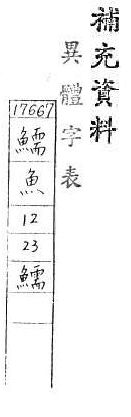 補充資料
異體字表
17667
鱬
魚
12
23
鱬